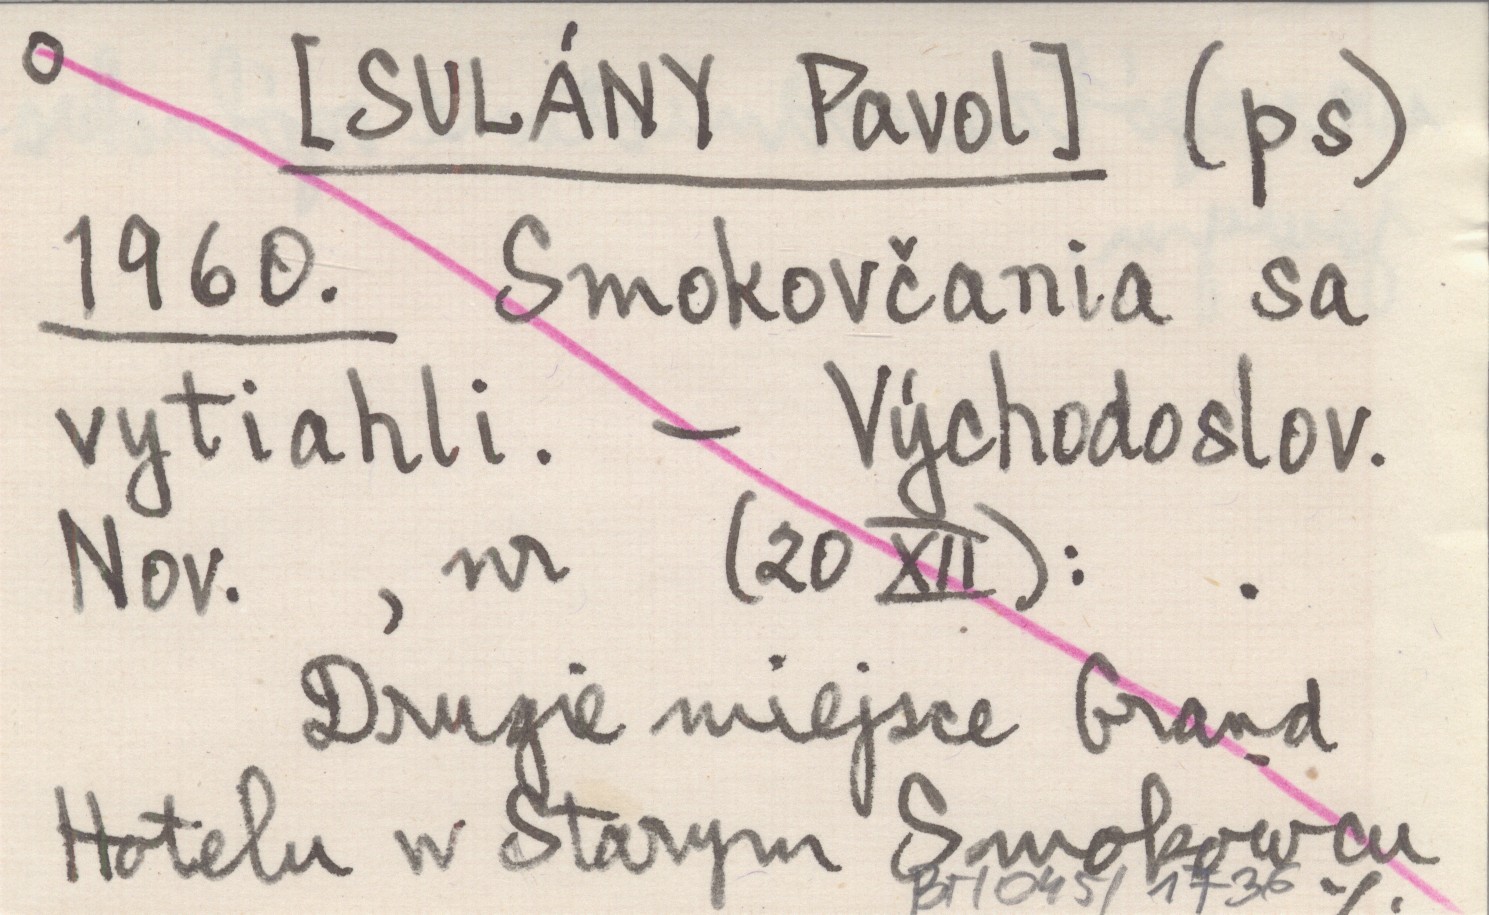 o [SULÁNY Pavol] (ps)
1960. Smokovčania sa
vytiahli. – Východoslov.
Nov. , nr (20 XII): .
Drugie miejsce Grand
Hotelu w Starym Smokowcu
BM/045/1736 ·/.